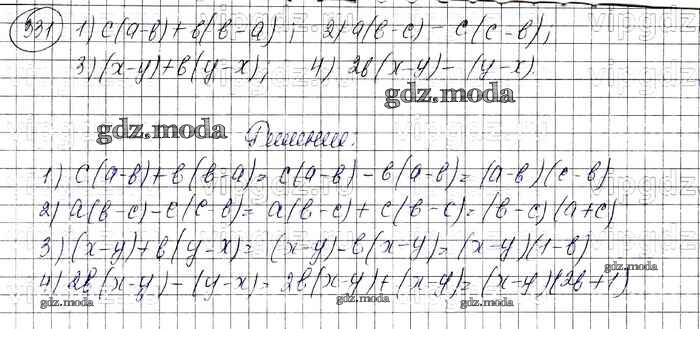 331 1) c(a-b)+b(b-a); 2) a(b-c)-c(c-b);
3) (x-y)+b(y-x); 4) 2b(x-y)-(y-x).
gdz.moda
gdz.moda
Решение:
1) c(a-b)+b(b-a)=c(a-b)-b(a-b)=(a-b)(c-b)
2) a(b-c)-c(c-b)=a(b-c)+c(b-c)=(b-c)(a+c)
3) (x-y)+b(y-x)=(x-y)-b(x-y)=(x-y)(1-b)
gdz.moda
4) 2b(x-y)-(y-x)=2b(x-y)+(x-y)=(x-y)(2b+1)
gdz.moda gdz.moda gdz.moda